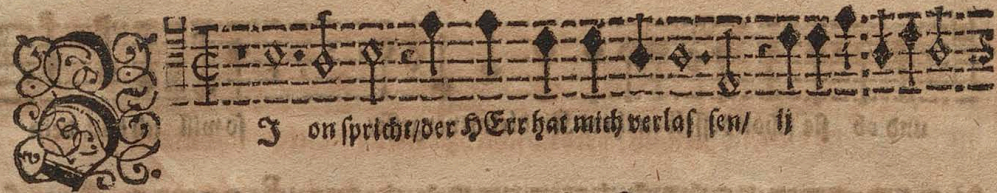 ZI on spricht/der HErr hat mich verlas sen/ ij